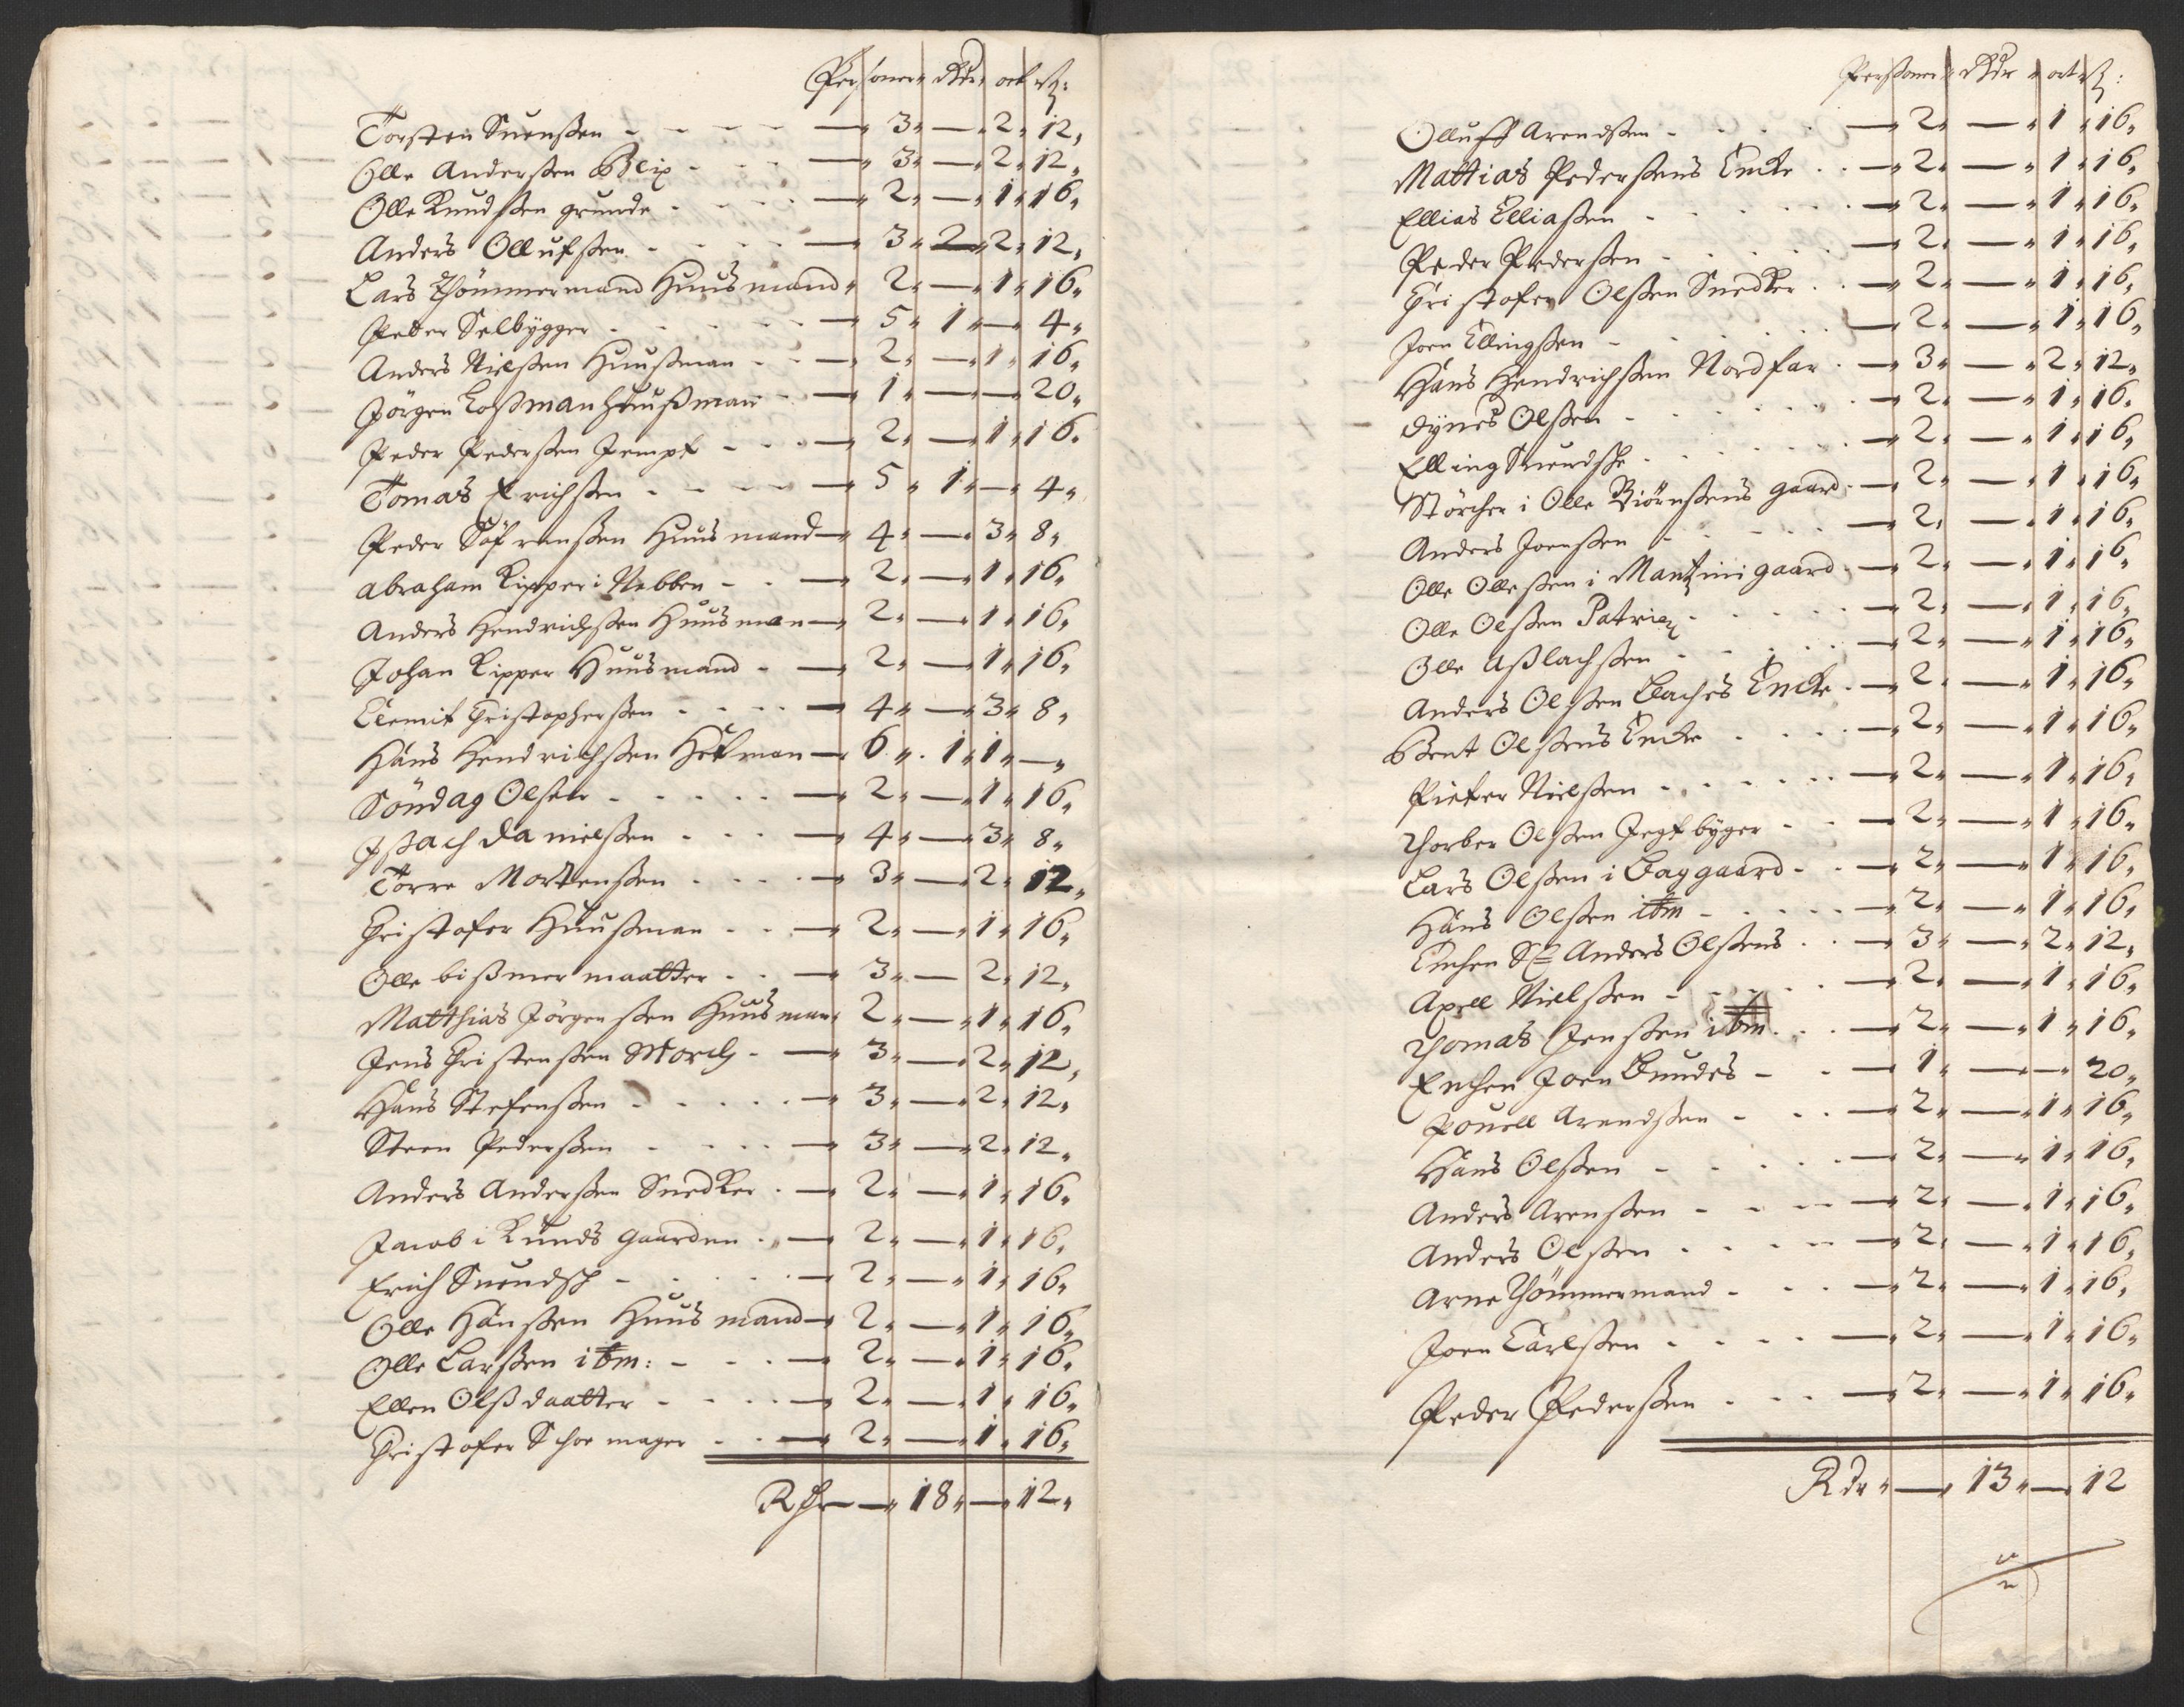 Personer Rdr ort ß:
Torsten Suenßen - - - - — 3 — 2 12
Olle Anderßen Blix - - - — 3 — 2 12
Olle Knudßen grunde - - - — 2 — 1 16
Anders Ollufßen - - - - — 3 2 2 12
Lars Thömmermand Huusmand 2 — 1 16
Peder Selbygger - - - - — 5 1 — 4
Anders Nielßen Huußman - - — 2 — 1 16
Jörgen Loßman Huußman - — 1 — — 20
Peder Pederßen Jempt - - - — 2 — 1 16
Tomas Erichßen - - - - — 5 1 — 4
Peder Söfrenßen Huusmand — 4 — 3 8
Abraham Kipper i Nebben - - — 2 — 1 16
Anders Hendrichßen Huusman — 2 — 1 16
Johan Kipper Huusmand - — 2 — 1 16
Clemit Christopherßen - - - - — 4 — 3 8
Hans Hendrichßen Hekman — 6 1 1 —
Söndag Olsen - - - - - — 2 — 1 16
Jßach Danielßen - - - — 4 — 3 8
Torre Mortenßen - - - - — 3 — 2 12
Christofer Huußman - - - — 2 — 1 16
Olle bißmer maatter - - — 3 — 2 12
Matthias Jörgenßen Huusman 2 — 1 16
Jens Christenßen Morch - — 3 — 2 12
Hans Stefenßen - - - - - — 3 — 2 12
Steen Pederßen - - - - — 3 — 2 12
Anders Anderßen Snedker - — 2 — 1 16
Jacob i Knuds gaarden - — 2 — 1 16
Erich Suendß - - - - - — 2 — 1 16
Olle Hanßen Huusmand — 2 — 1 16
Olle Larßen ibm: - - - — 2 — 1 16
Ellen Olßdaatter - - - - — 2 — 1 16
Christofer Schoemager - - — 2 — 1 16
Rdr — 18 — 12
Perßoner Rdr ort ß:
Olluff Arendßen - - - - — 2 — 1 16
Mattias Pederßens Encke - - — 2 — 1 16
Ellias Elliaßen - - - - - — 2 — 1 16
Peder Pederßen - - - - - — 2 — 1 16
Christofer Olßen Snedker - - — 2 — 1 16
Joen Ellingßen - - - - - — 2 — 1 16
Hans Hendrichßen Nordfar - — 3 — 2 12
Dynes Olßen - - - - - - — 2 — 1 16
Elling Suendße - - - - - — 2 — 1 16
Störcher i Olle Biörnßens gaard — 2 — 1 16
Anders Joenßen - - - - - — 2 — 1 16
Olle Olleßen i Mantzini gaard — 2 — 1 16
Olle Olßen Patriz - - - - - — 2 — 1 16
Olle Aßlachßen - - - - - — 2 — 1 16
Anders Olßen Baches Encke - — 2 — 1 16
Bent Olßens Encke - - - - — 2 — 1 16
Pieter Nielßen - - - - - - — 2 — 1 16
Thorber Olßen Jegtbyger - - — 2 — 1 16
Lars Olßen i Baggaard - - — 2 — 1 16
Hans Olßen ibm - - - - - — 2 — 1 16
Enchen Sl Anders Olßens - - — 3 — 2 12
Axell Nielßen - - - - - — 2 — 1 16
Thomas Jenßen ibm - - - — 2 — 1 16
Enchen Joen Bundes - - — 1 — — 20
Pouell Arendßen - - - — 2 — 1 16
Hans Olßen - - - - - — 2 — 1 16
Anders Arenßen - - - - — 2 — 1 16
Anders Olßen - - - - — 2 — 1 16
Arne Thömmermand - - - — 2 — 1 16
Joen Carlßen - - - - — 2 — 1 16
Peder Pederßen - - - — 2 — 1 16
Rdr — 13 — 12